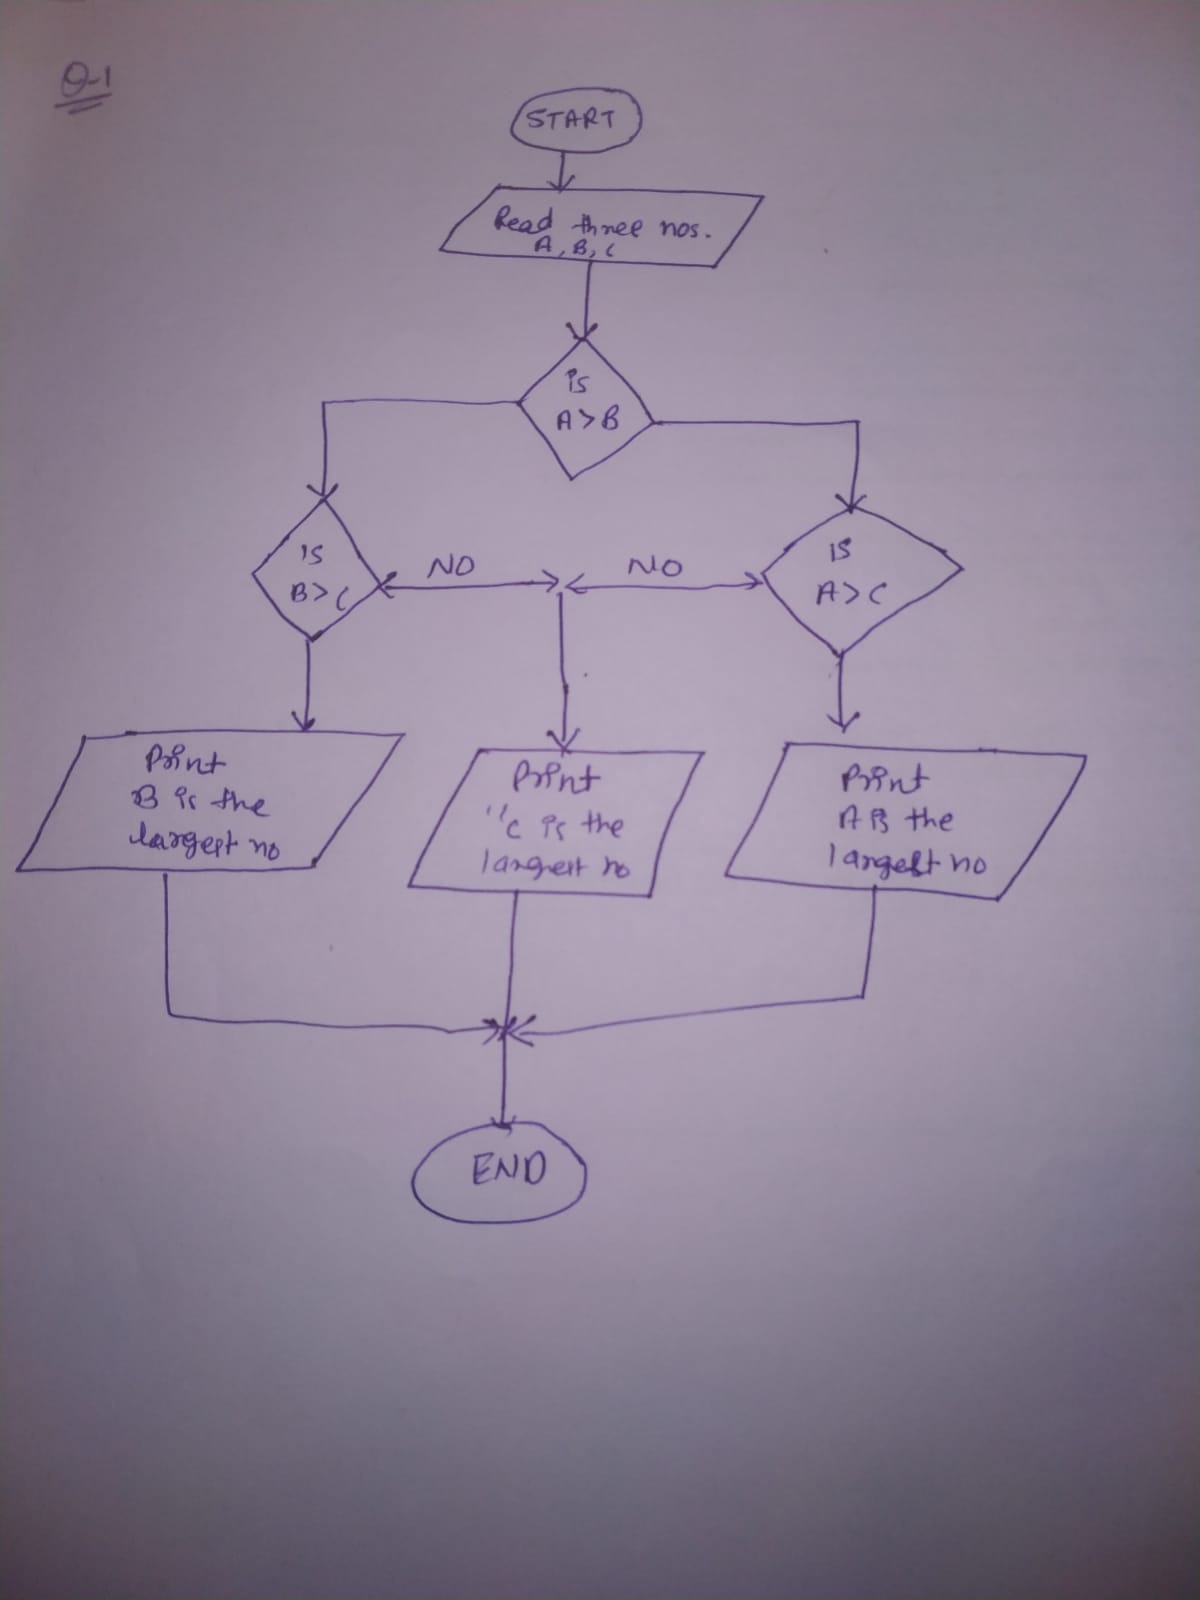 Q-1
START
Read three nos.
A, B, C
is
A>B
is
B>C
NO
NO
is
A>C
Print
B is the
largest no
Print
"C is the
largest no
Print
A is the
largest no
END